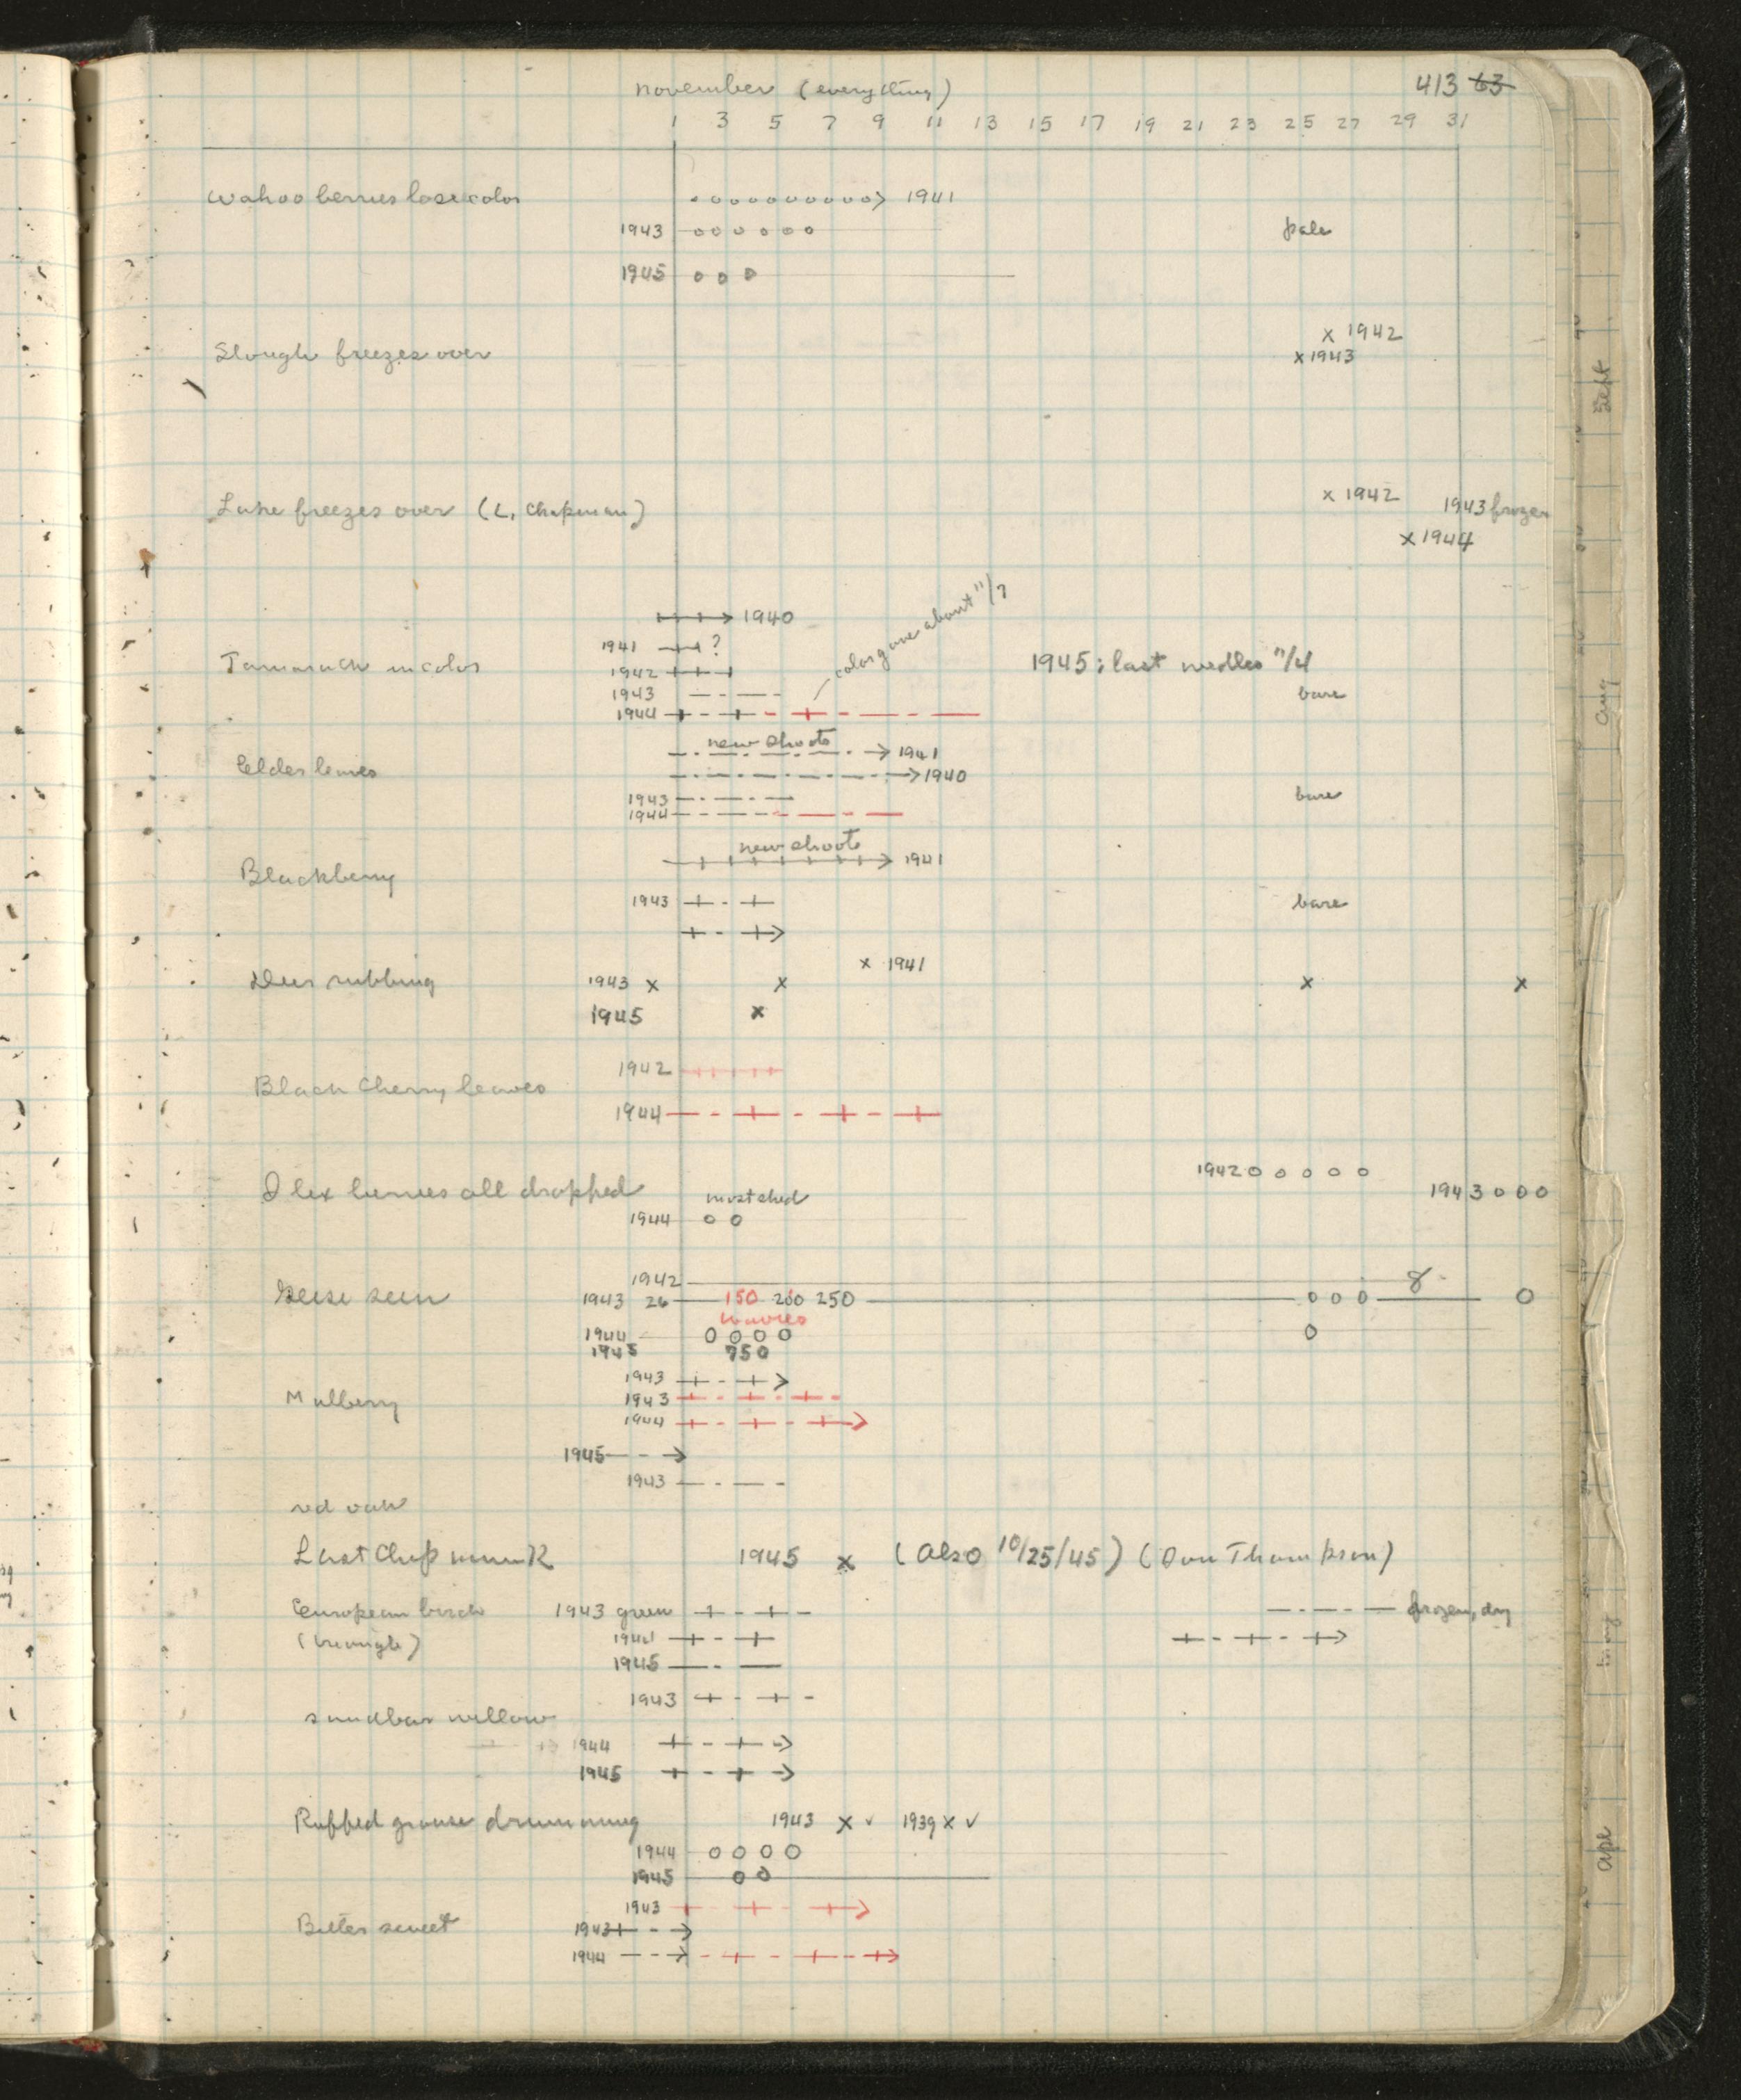 november (everything) 413 63
1 3 5 7 9 11 13 15 17 19 21 23 25 27 29 31
wahoo berries lose color 1941
1943 pale
1945
x 1942
Slough freezes over x 1943
x 1942
Lake freezes over (L. Chapman) 1943 frozen
x 1944
1940
1941 ?
color gone about 11/7
Tamarack in color 1942 1945: last needles 11/4
1943 bare
1944
new shoots
1941
Elder leaves 1940
1943 bare
1944
new shoots
1941
Blackberry
1943 bare
x 1941
Deer rubbing 1943 x x x x
1945 x
1942
Black Cherry leaves
1944
1942 o o o o o
Ilex berries all dropped most shed 1943 o o o
1944 o o
1942 8
Geese seen 1943 26 150 200 250 o o o o
wavies
1944 o o o o o
1945 750
1943
Mulberry 1943
1944
1945
1943
red oak
Last Chipmunk 1945 x (Also 10/25/45) (Don Thompson)
European birch 1943 green frozen, dry
1944
1945
1943
sandbar willow
1944
1945
Ruffed grouse drumming 1943 x ✓ 1939 x ✓
1944 o o o o
1945 o o
1943
Bittersweet 1943
1944
Sept
Aug
Apl